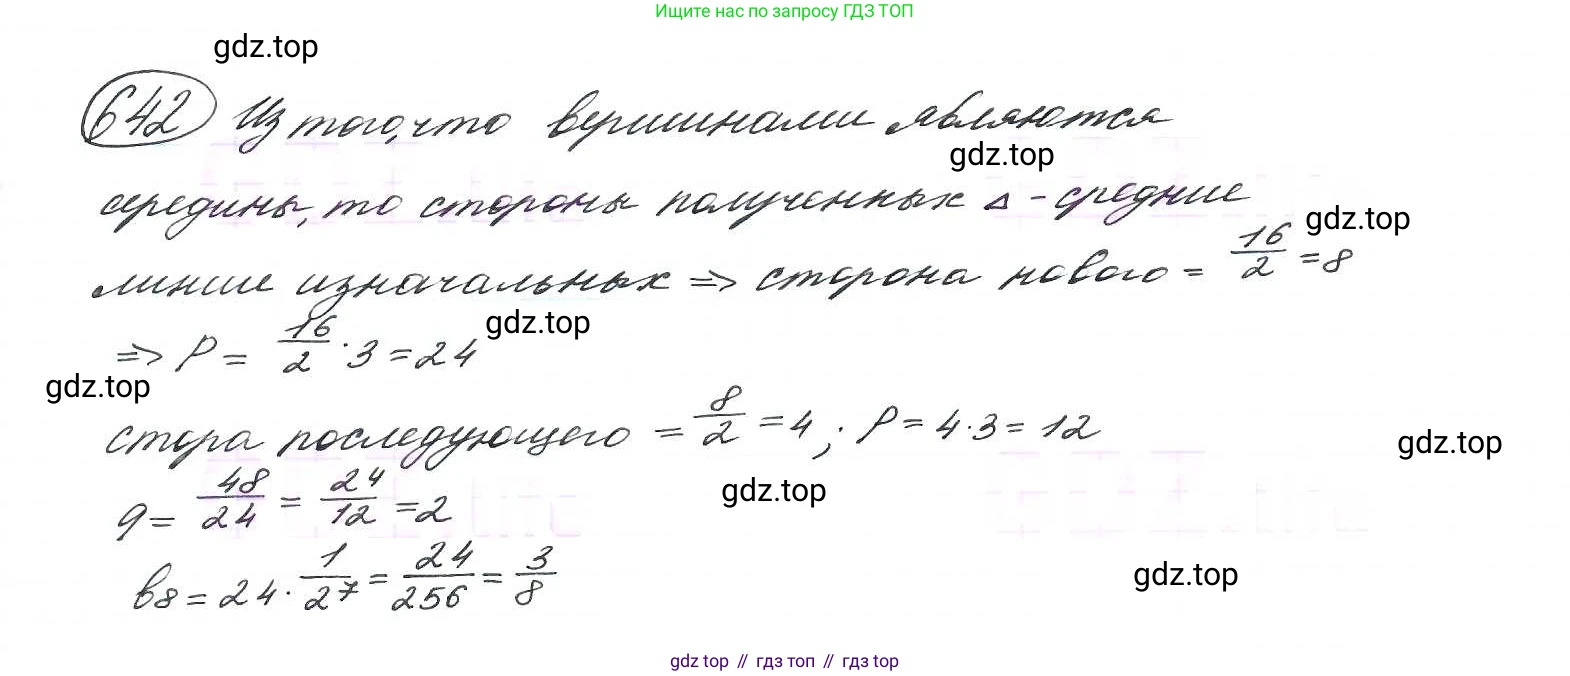 Ищите нас по запросу ГДЗ ТОП
gdz.top
642 Из того, что вершинами являются
gdz.top
середины, то стороны полученных Δ - средние
gdz.top
линии изначальных => сторона нового = 16/2 = 8
gdz.top
=> P = 16/2 · 3 = 24
gdz.top
стора последующего = 8/2 = 4; P = 4·3 = 12
gdz.top
gdz.top
q = 48/24 = 24/12 = 2
b8 = 24 · 1/27 = 24/256 = 3/8
gdz.top
gdz top // гдз топ // гдз top